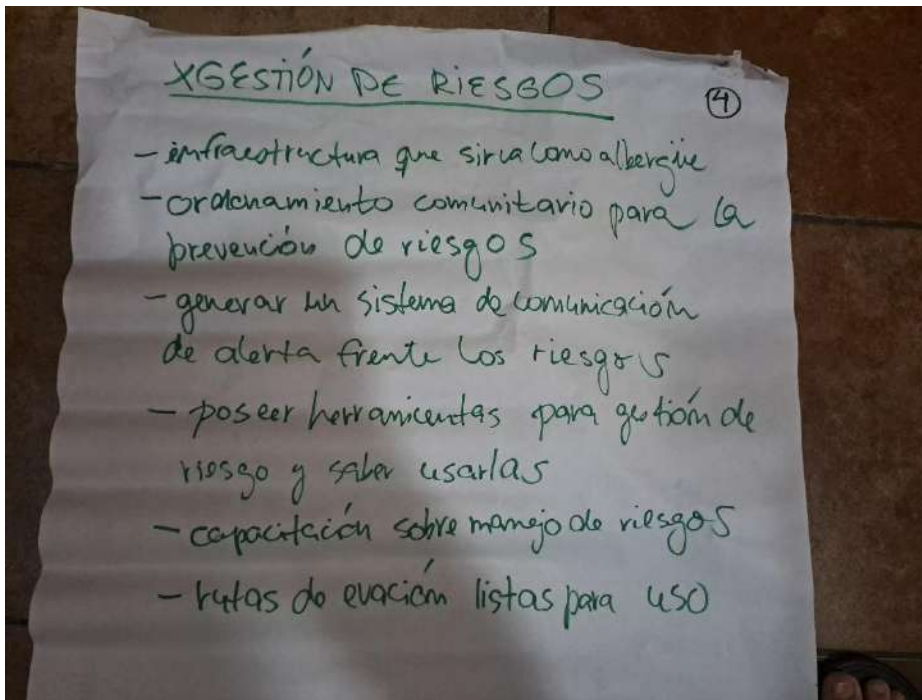 XGESTIÓN DE RIESGOS
4
- infraestructura que sirva como albergüe
- ordenamiento comunitario para la
prevención de riesgos
- generar un sistema de comunicación
de alerta frente los riesgos
- poseer herramientas para gestión de
riesgo y saber usarlas
- capacitación sobre manejo de riesgos
- rutas de evación listas para uso